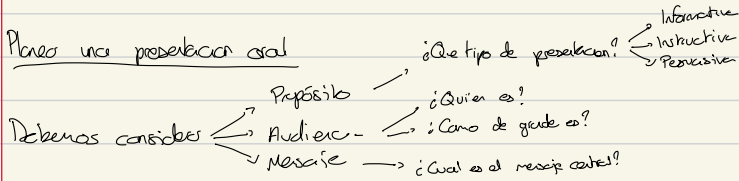 Planeo una presentacion oral
Debemos considerar
Propósito
¿Que tipo de presentacion?
Informativa
Instructiva
Persuasiva
Audienc-
¿Quien es?
¿Como de grande es?
Mensaje
¿Cual es el mensaje central?